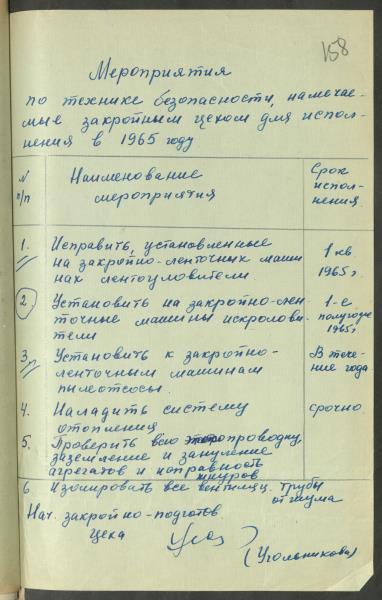 158
Мероприятия
по технике безопасности, намечае-
мые закройным цехом для испол-
нения в 1965 году
N п/п
Наименование мероприятия
Срок испол- нения.
1. Исправить, установленные 1 кв.
на закройно-ленточных маши 1965 г.
нах лентоуловители.
2. Установить на закройно-лен- 1-е
точные машины искролови- полугодие
тели 1965 г.
3. Установить к закройно- В тече-
ленточным машинам ние года
пылеотсосы.
4. Наладить систему срочно
отопления
5. Проверить всю проводку,
заземление и зануление
агрегатов и исправность
шнуров
6 Изолировать все вентиляц. трубы
от шума
Нач. закройно-подготов
цеха
(Угольникова)